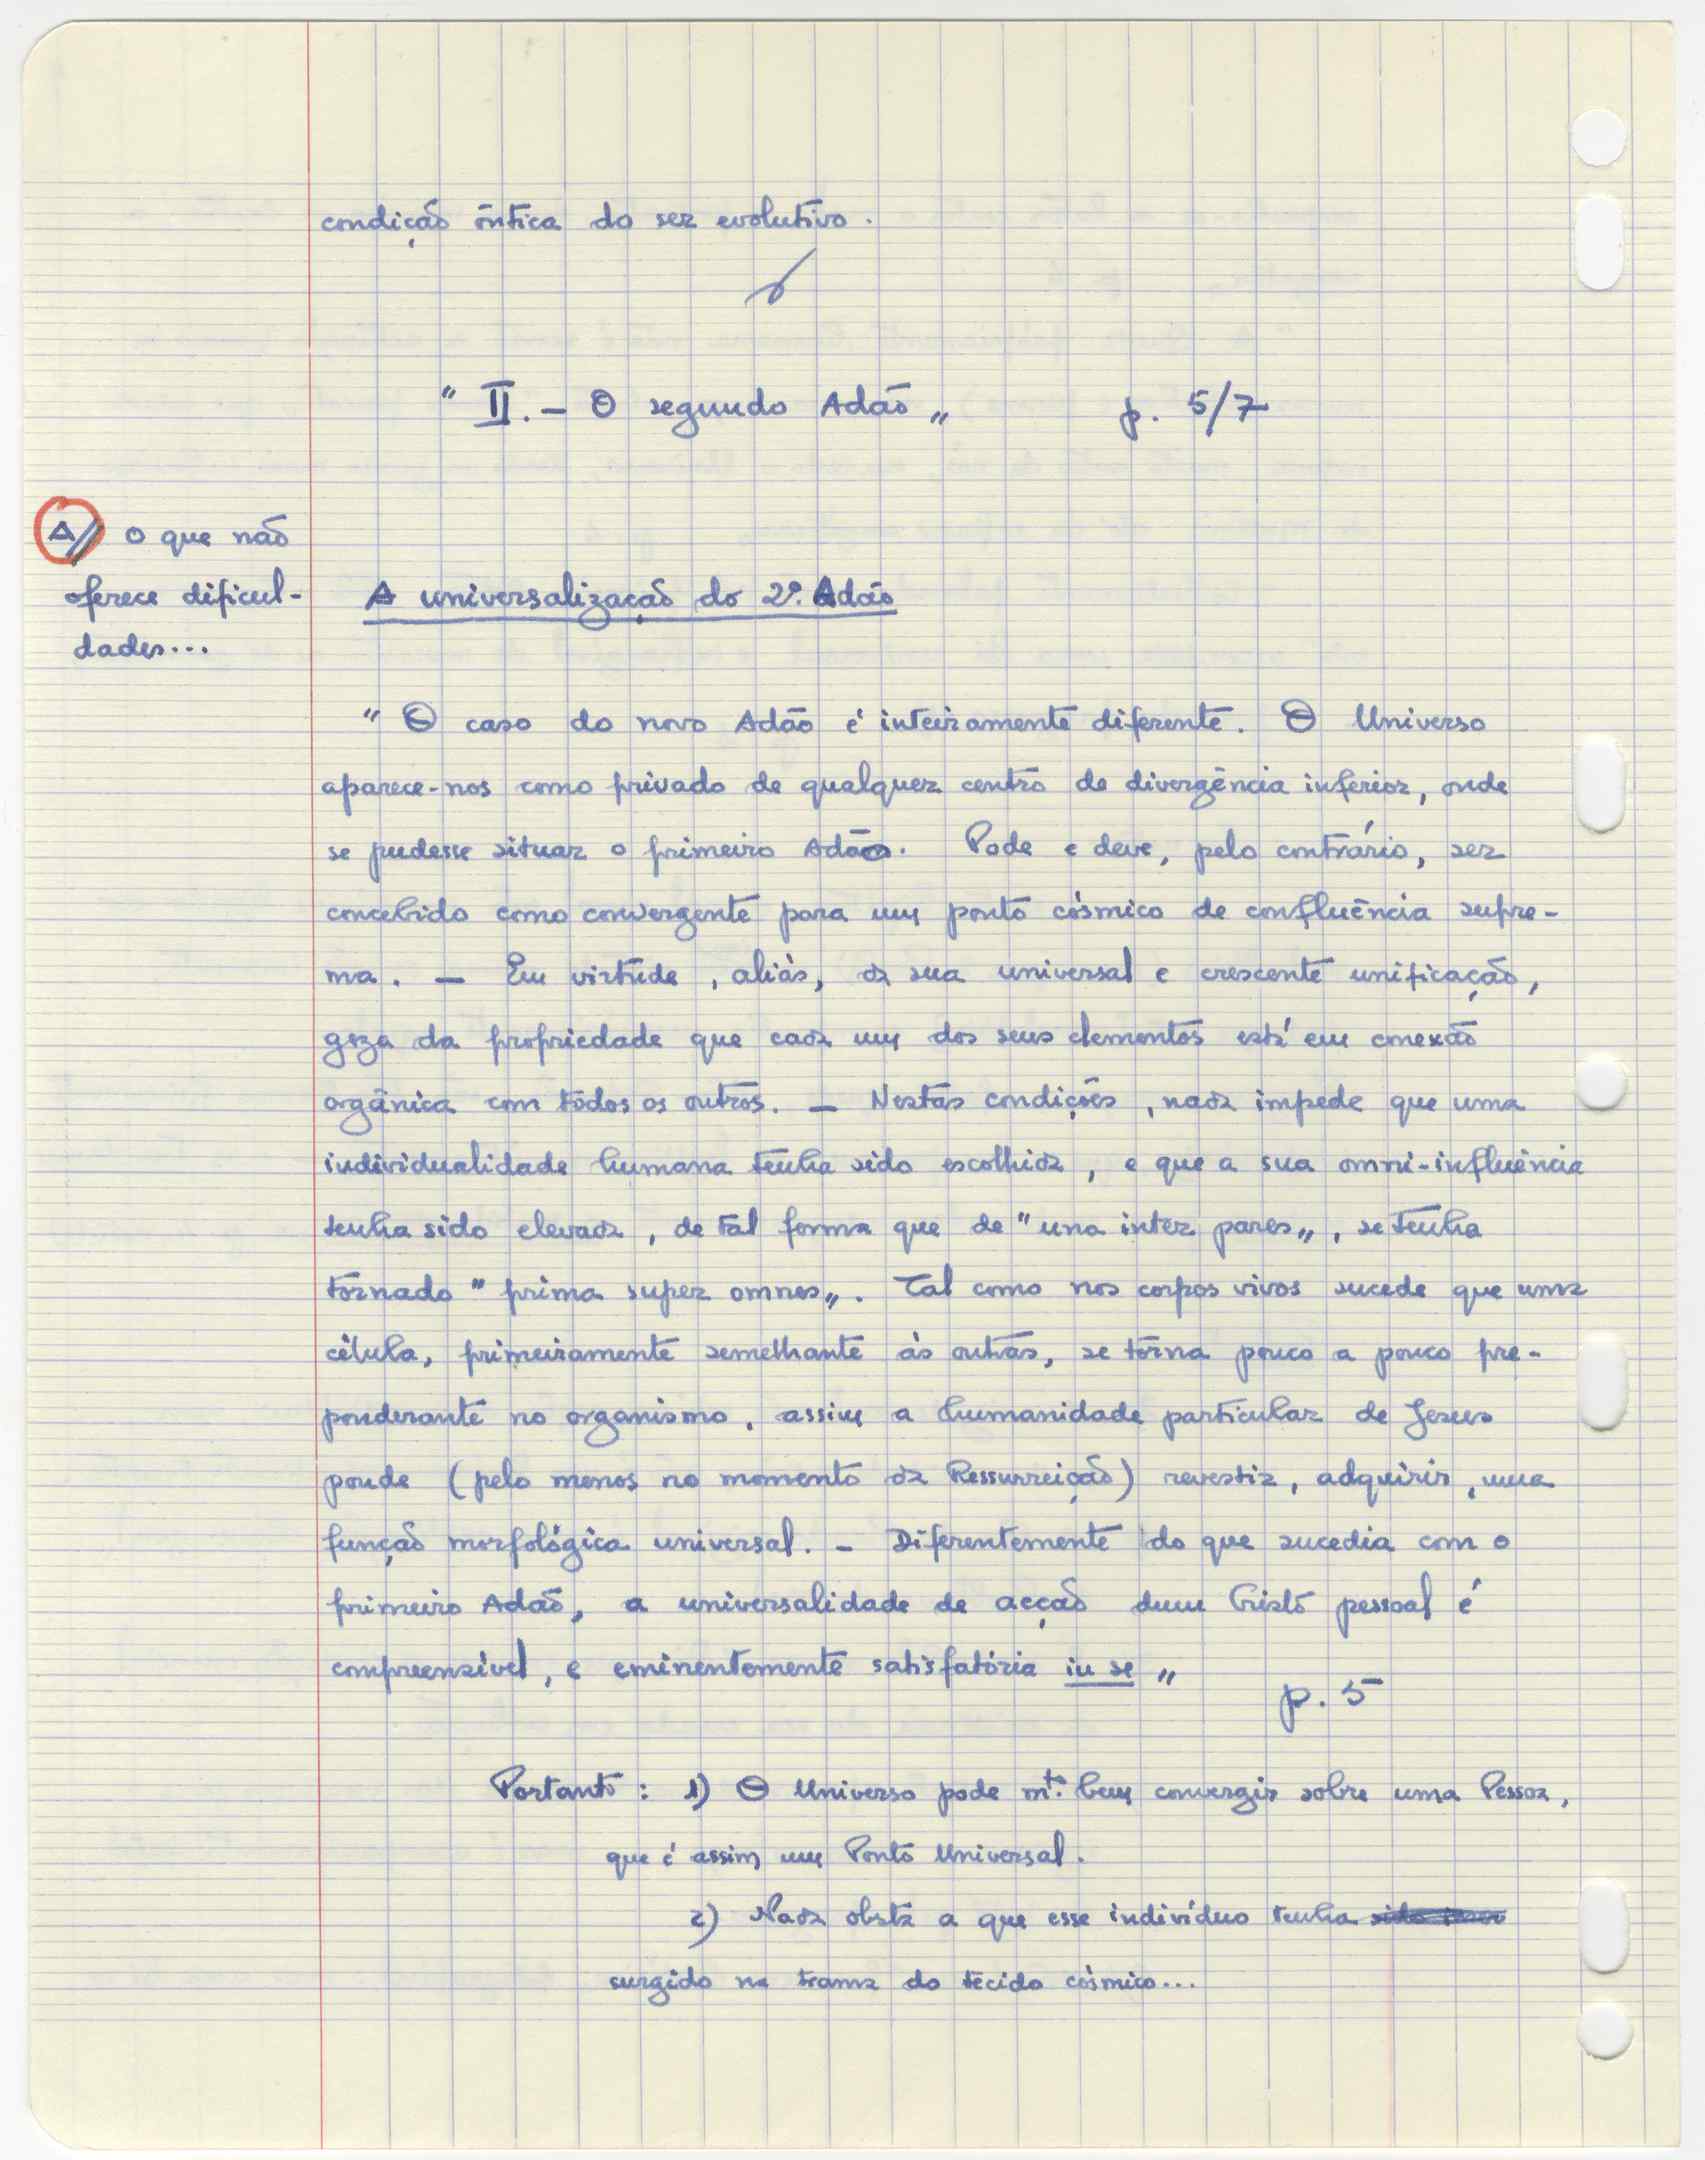 condição ôntica do ser evolutivo.
" II. — O segundo Adão „ p. 5/7
A// O que não
oferece dificul-
dades...
A universalização do 2º. Adão
" O caso do novo Adão é inteiramente diferente. O Universo
aparece-nos como privado de qualquer centro de divergência inferior, onde
se pudesse situar o primeiro Adão. Pode e deve, pelo contrário, ser
concebido como convergente para um ponto cósmico de confluência supre-
ma. — Em virtude, aliás, da sua universal e crescente unificação,
goza da propriedade que cada um dos seus elementos está em conexão
orgânica com todos os outros. — Nestas condições, nada impede que uma
individualidade humana tenha sido escolhida, e que a sua omni-influência
tenha sido elevada, de tal forma que de "una inter pares„, se tenha
tornado "prima super omnes„. Tal como nos corpos vivos sucede que uma
célula, primeiramente semelhante às outras, se torna pouco a pouco pre-
ponderante no organismo, assim a humanidade particular de Jesus
poude (pelo menos no momento da Ressurreição) revestir, adquirir, uma
função morfológica universal. — Diferentemente do que sucedia com o
primeiro Adão, a universalidade de acção dum Cristo pessoal é
compreensível, e eminentemente satisfatória in se „
p. 5
Portanto: 1) O Universo pode mto. bem convergir sobre uma Pessoa,
que é assim um Ponto Universal.
2) Nada obsta a que esse indivíduo tenha
surgido na trama do tecido cósmico...